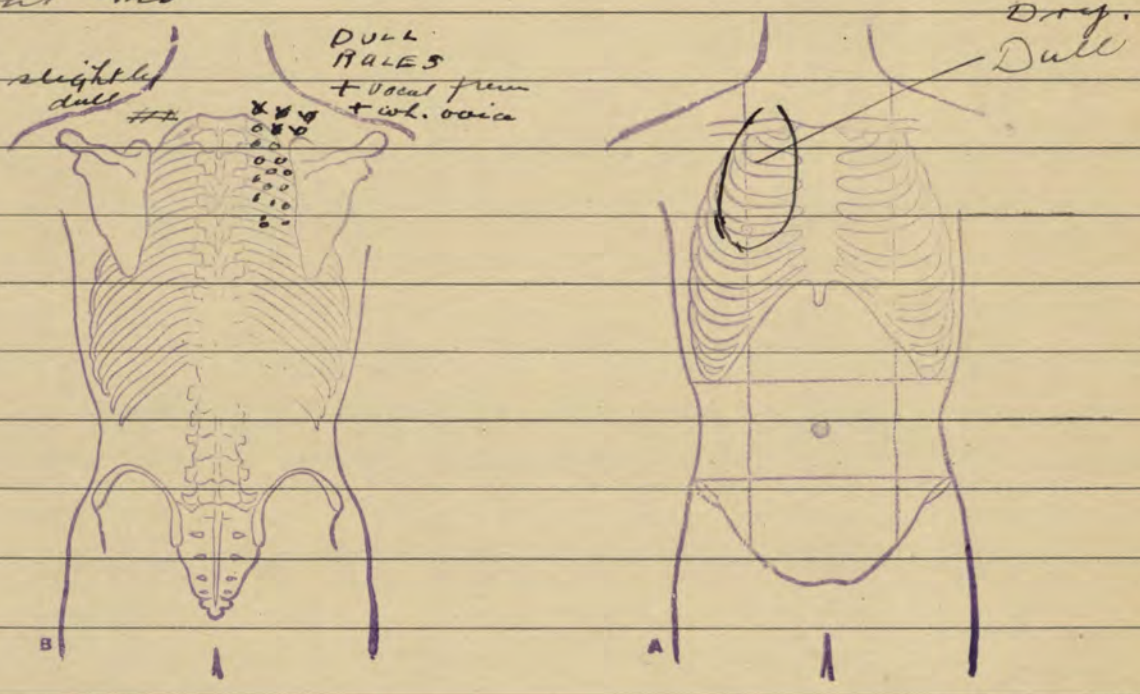 slightly
dull
DULL
RALES
+ vocal frem
+ wh. voice
Dry.
Dull
B
A